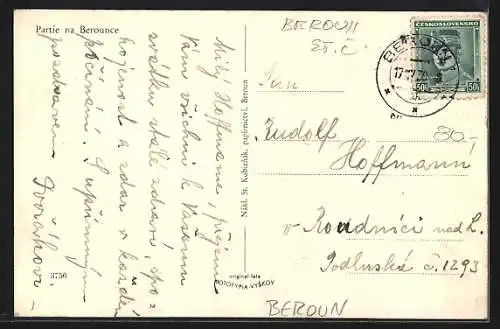 Partie na Berounce
BEROUN
ST. Č.
ČESKOSLOVENSKO
50
50
BEROUN 1
80,-
Milý Hoffmanne, přejeme
Vám všichni k Vašemu
svátku stále zdraví, spo-
kojenost a zdar v každém
počínání. S upřímným
pozdravem Dvořákovi
Pan
Rudolf
Hoffmann
v Roudnici nad L.
Podluská č. 1293
Nákl. St. Kubizňák, papírnictví, Beroun
3756
original foto
FOTOTYPIA-VYŠKOV
BEROUN